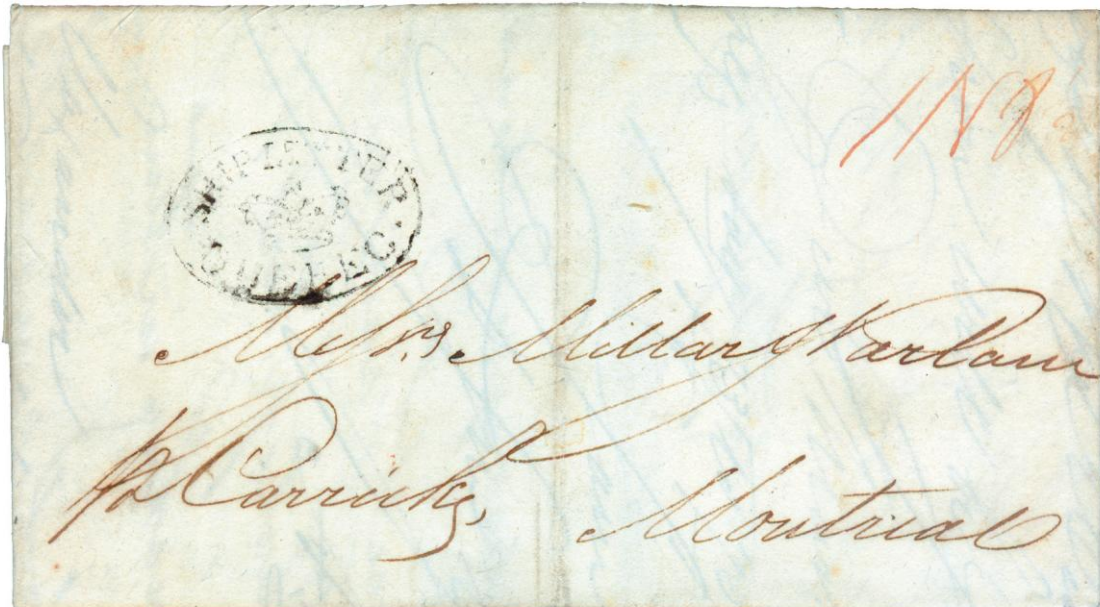 1N8
SHIP LETTER
QUEBEC
Messrs. Millar & Parlane
Pr Carricks,
Montreal